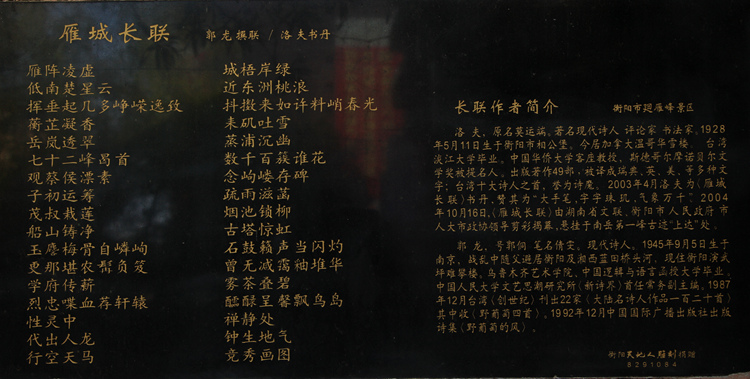 雁城长联
郭龙撰联 / 洛夫书丹
雁阵凌虚
低南楚星云
挥垂起几多峥嵘逸致
蘅芷凝香
岳岚透翠
七十二峰昂首
观蔡侯漂素
子初运筹
茂叔栽莲
船山铸净
玉麐梅骨自嶙峋
更那堪农髯负笈
学府传薪
烈忠喋血荐轩辕
性灵中
代出人龙
行空天马
城梧岸绿
近东洲桃浪
抖擞来如许料峭春光
耒矶吐雪
蒸浦沉幽
数千百蕻谁花
念岣嵝存碑
疏雨滋菡
烟池锁柳
古塔惊虹
石鼓籁声当闪灼
曾无减霭袖堆华
雾茶叠碧
醽醁呈馨飘鸟鸟
禅静处
钟生地气
竞秀画图
长联作者简介
衡阳市廻雁峰景区
洛夫，原名莫运端，著名现代诗人 评论家 书法家。1928
年5月11日生于衡阳市相公堡。今居加拿大温哥华雪楼。 台湾
淡江大学毕业。中国华侨大学客座教授，斯德哥尔摩诺贝尔文
学奖被提名人。出版著作49部，被译成瑞典、英、美、等多种文
字；台湾十大诗人之首，誉为诗魔。 2003年4月洛夫为《雁城
长联》书丹，赞其为“大手笔，字字珠玑，气象万千”。2004
年10月16日，《雁城长联》由湖南省文联、衡阳市人民政府市
人大市政协领导剪彩揭幕，悬挂于南岳第一峰古迹“上达”处。
郭 龙、号郭侗 笔名倩雯，现代诗人。1945年9月5日生于
南京，战乱中随父避居衡阳及湘西蓝田桥头河，现住衡阳演武
坪雄翠楼。乌鲁木齐艺术学院、中国逻辑与语言函授大学毕业，
中国人民大学文艺思潮研究所《新诗界》首任常务副主编。1987
年12月台湾《创世纪》刊出22家《大陆名诗人作品一百二十首》
其中收《野葡萄四首》。1992年12月中国国际广播出版社出版
诗集《野葡萄的风》。
衡阳天地人雕刻捐赠
8291084